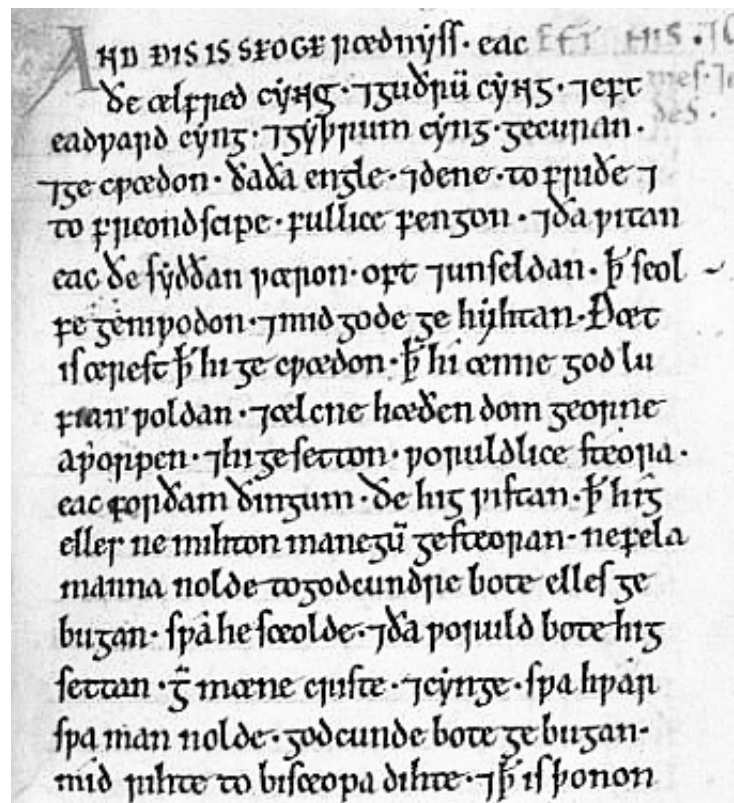 AND ÐIS IS SEO GE rædnyss. eac
ðe ælfred cyng. ⁊guðrū cyng. ⁊eft
eadƿard cyng. ⁊gyþrum cyng. gecuran.
⁊ge cƿædon. ðaða engle. ⁊dene. to friðe ⁊
to freondscipe. fullice fengon. ⁊ða ƿitan
eac ðe syððan ƿæron. oft ⁊unseldan. ꝥ seol
fe geniƿodon. ⁊mid gode ge hyhtan. Ðæt
is ærest ꝥ hi ge cƿædon. ꝥ hi ænne god lu
fian ƿoldan. ⁊ælcne hæðen dom georne
aƿorpen. ⁊hi gesetton. ƿoruldlice steora.
eac forðam ðingum. ðe hig ƿistan. ꝥ hig
elles ne mihton manegū gesteoran. ne fela
manna nolde to godcundre bote elles ge
bugan. sƿa he sceolde. ⁊ða ƿoruld bote hig
settan. gemæne criste. ⁊cynge. sƿa hƿar
sƿa man nolde. godcunde bote ge bugan.
mid rihte to bisceopa dihte. ⁊ꝥ is þonon